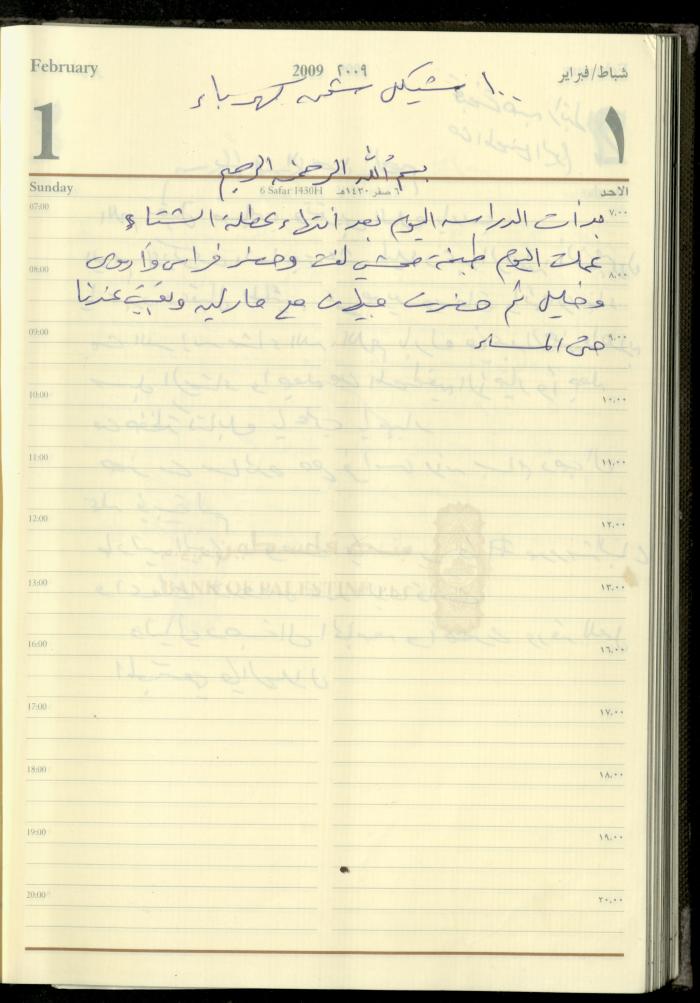 February
2009 ٢٠٠٩
شباط/فبراير
١٠٠ شيكل شحن كهرباء
1
١
بسم الله الرحمن الرحيم
Sunday
6 Safar 1430H ٦ صفر ١٤٣٠هـ
الاحد
07:00
٧،٠٠
بدأت الدراسه اليوم بعد انتهاء عطلة الشتاء
عملت اليوم طبخة محشي لفت وحضر فراس وأروى
08:00
٨،٠٠
وخليل ثم حضرت جيهان مع مارلين وبقيت عندنا
09:00
٩،٠٠
حتى المساء
10:00
١٠،٠٠
11:00
١١،٠٠
12:00
١٢،٠٠
BANK OF PALESTINE
13:00
١٣،٠٠
16:00
١٦،٠٠
17:00
١٧،٠٠
18:00
١٨،٠٠
19:00
١٩،٠٠
20:00
٢٠،٠٠